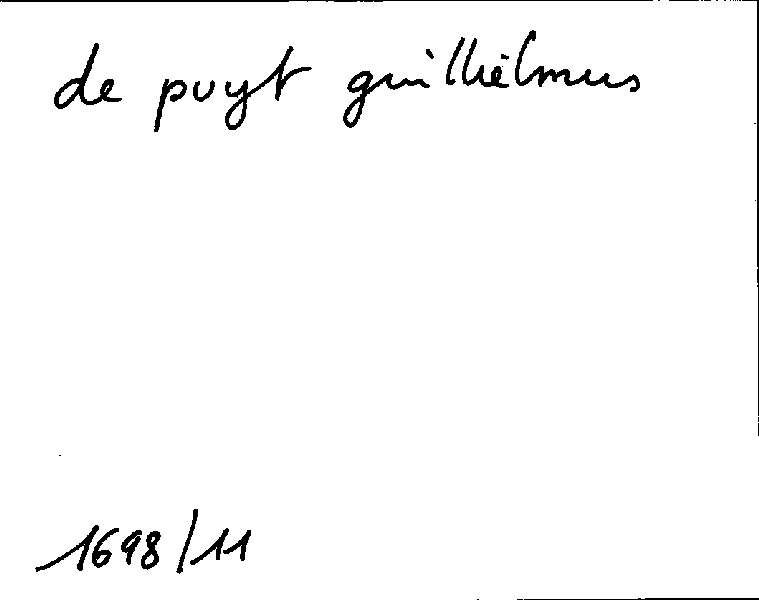 de puyt guilliëlmus
1698/11